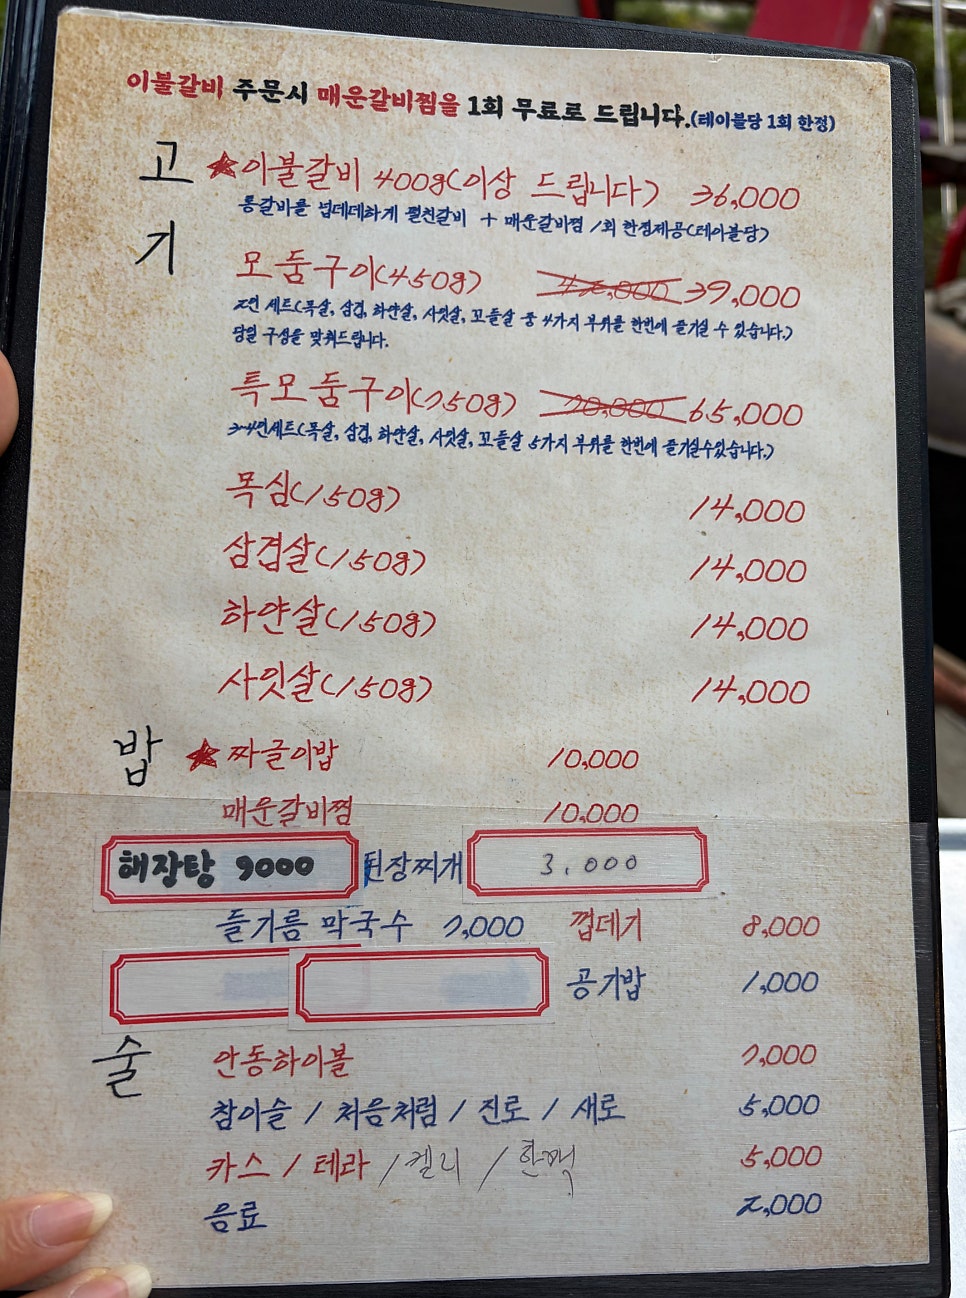 이불갈비 주문시 매운갈비찜을 1회 무료로 드립니다.(테이블당 1회 한정)
고기
★이불갈비 400g(이상 드립니다) 36,000
통갈비를 넙데데하게 펼친갈비 + 매운갈비찜 1회 한정제공(테이블당)
모둠구이(450g) 42,000 39,000
2인 세트(목살, 삼겹, 하얀살, 사잇살, 꼬들살 중 4가지 부위를 한번에 즐기실 수 있습니다.)
당일 구성을 맞춰드립니다.
특모둠구이(750g) 70,000 65,000
3~4인세트(목살, 삼겹, 하얀살, 사잇살, 꼬들살 5가지 부위를 한번에 즐기실수있습니다.)
목심(150g) 14,000
삼겹살(150g) 14,000
하얀살(150g) 14,000
사잇살(150g) 14,000
밥
★짜글이밥 10,000
매운갈비찜 10,000
해장탕 9000 된장찌개 3.000
들기름 막국수 7,000 껍데기 8,000
공기밥 1,000
술
안동하이볼 7,000
참이슬 / 처음처럼 / 진로 / 새로 5,000
카스 / 테라 / 켈리 / 한맥 5,000
음료 2,000